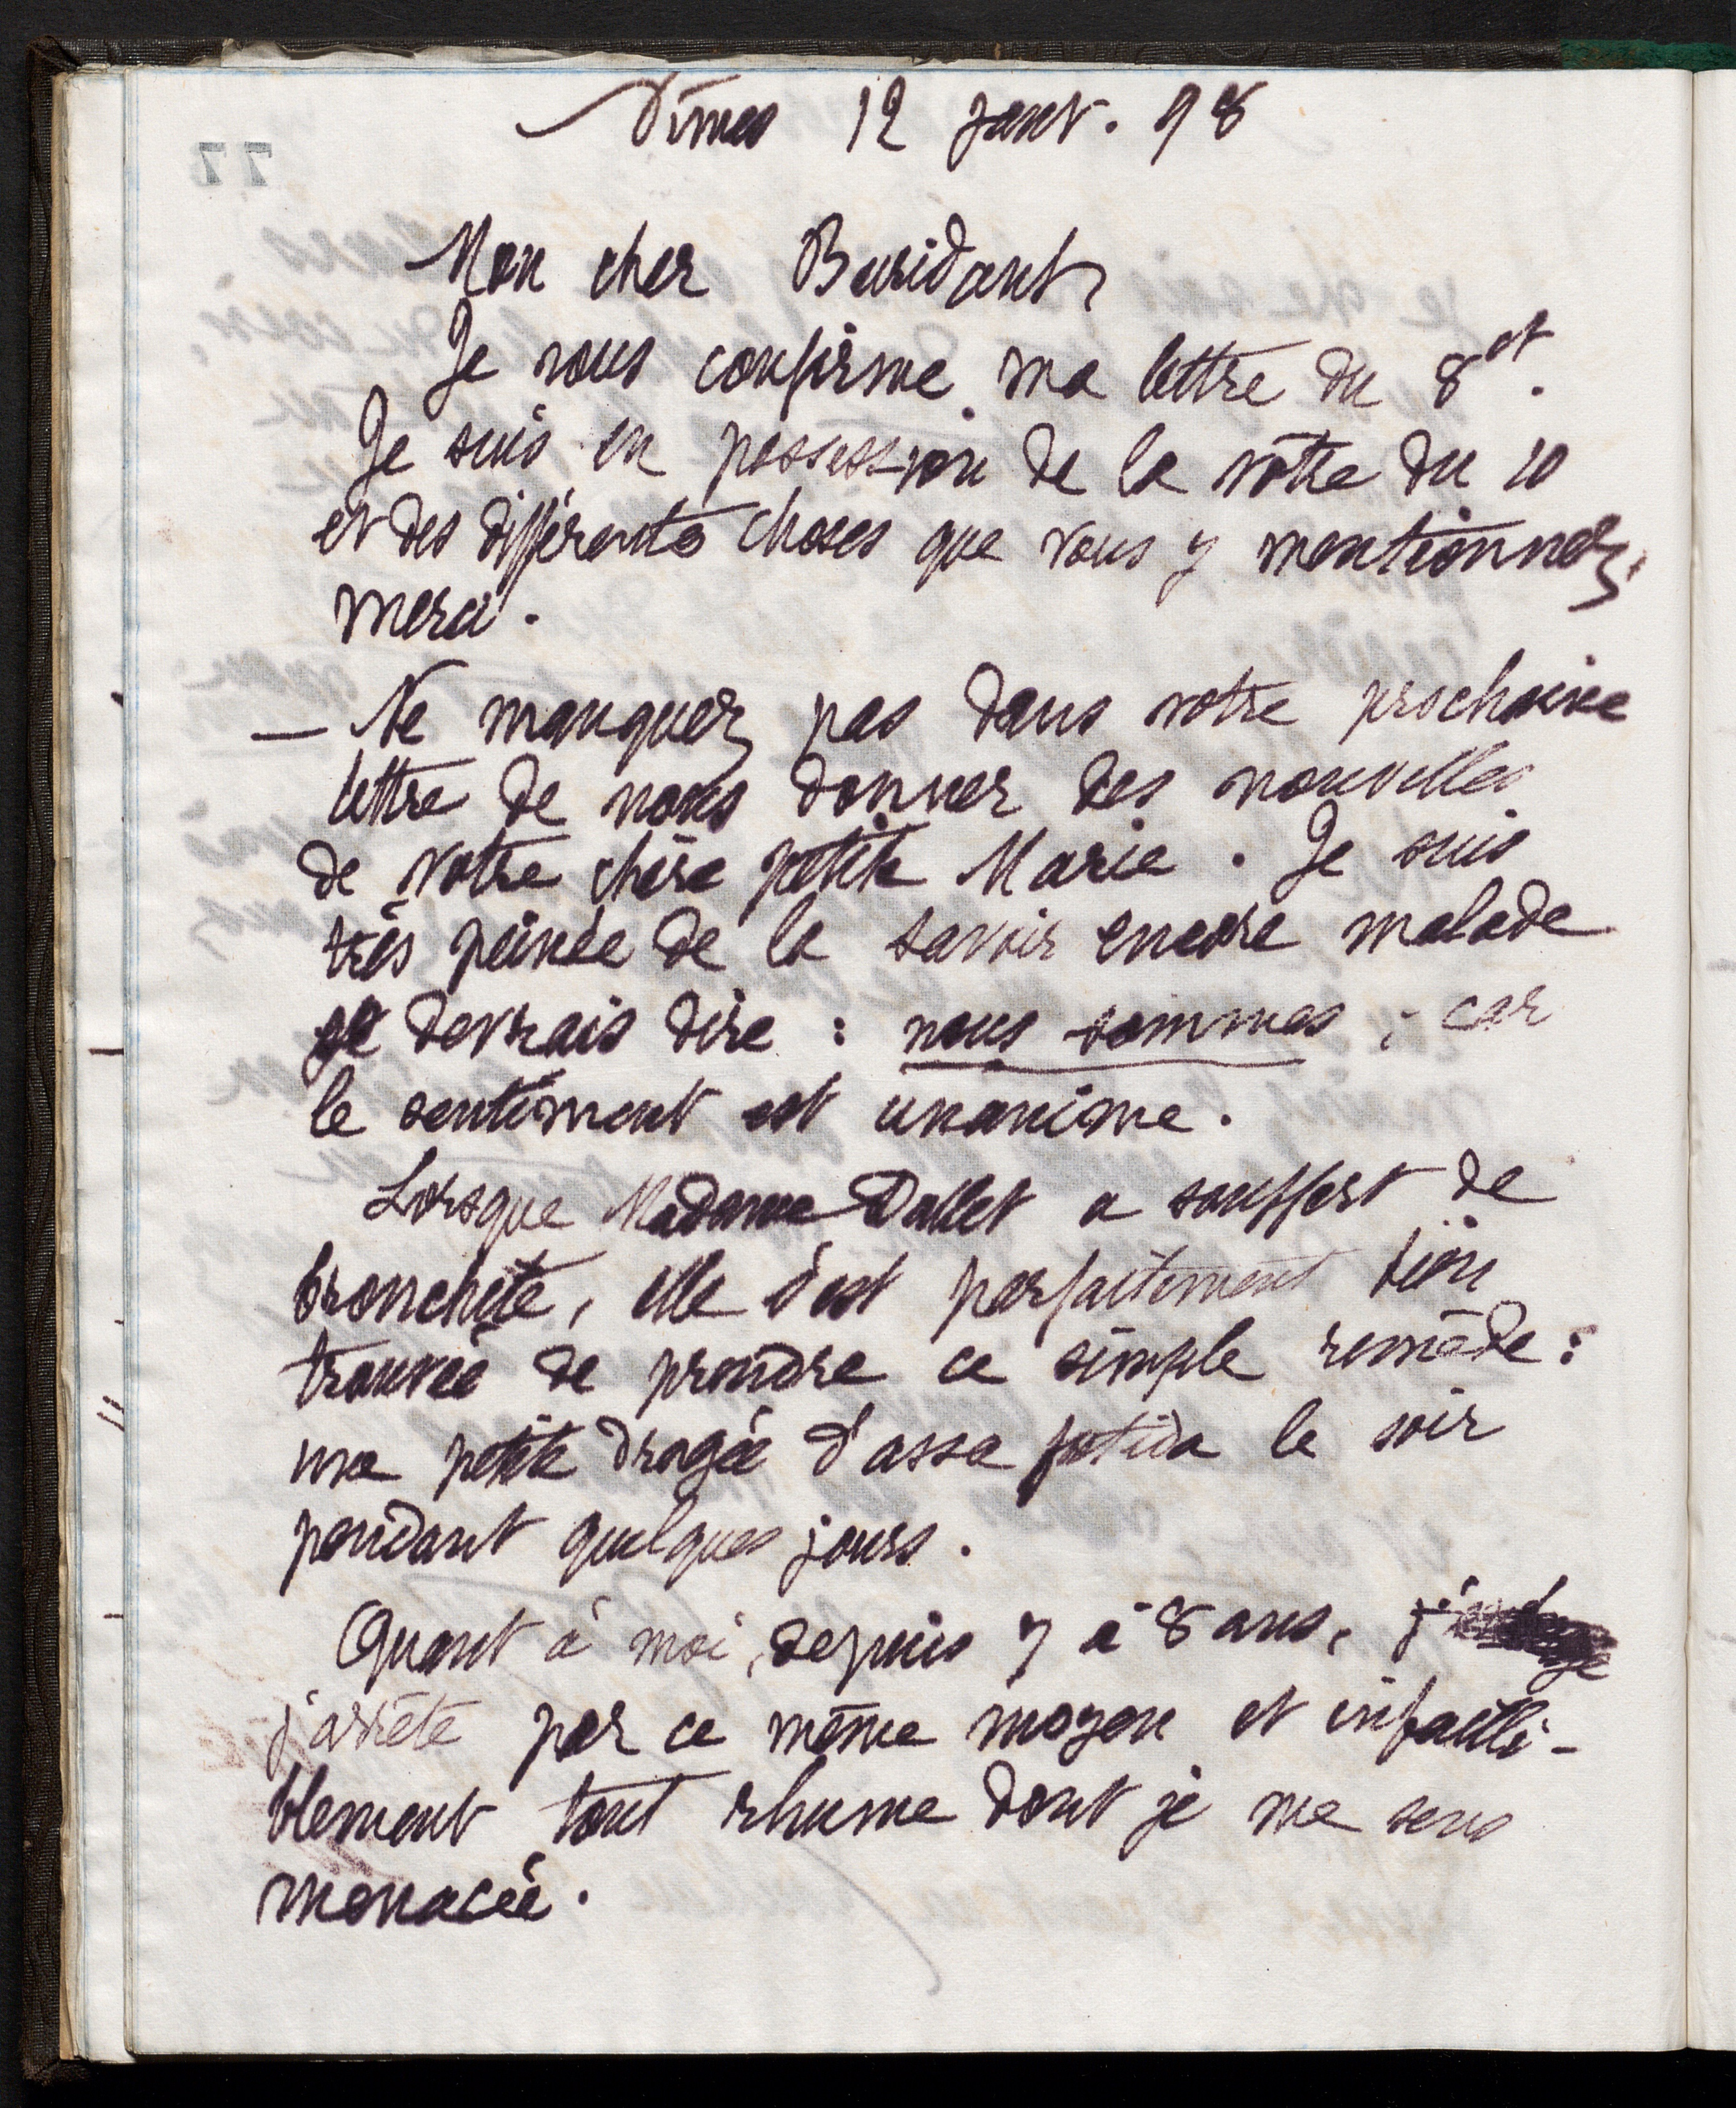 Nîmes 12 janv. 98
77
Mon cher Buridant,
Je vous confirme ma lettre du 8 ct.
Je suis en possession de la vôtre du 10
et des différentes choses que vous y mentionnez,
merci.
— Ne manquez pas dans votre prochaine
lettre de nous donner des nouvelles
de votre chère petite Marie. Je suis
très peinée de la savoir encore malade
je devrais dire : nous sommes ; car
le sentiment est unanime.
Lorsque Madame Dallet a souffert de
bronchite, elle s'est parfaitement bien
trouvée de prendre ce simple remède :
une petite dragée d'assa fœtida le soir
pendant quelques jours.
Quant à moi, depuis 7 à 8 ans,
j'arrête par ce même moyen et infailli-
blement tout rhume dont je me sens
menacée.